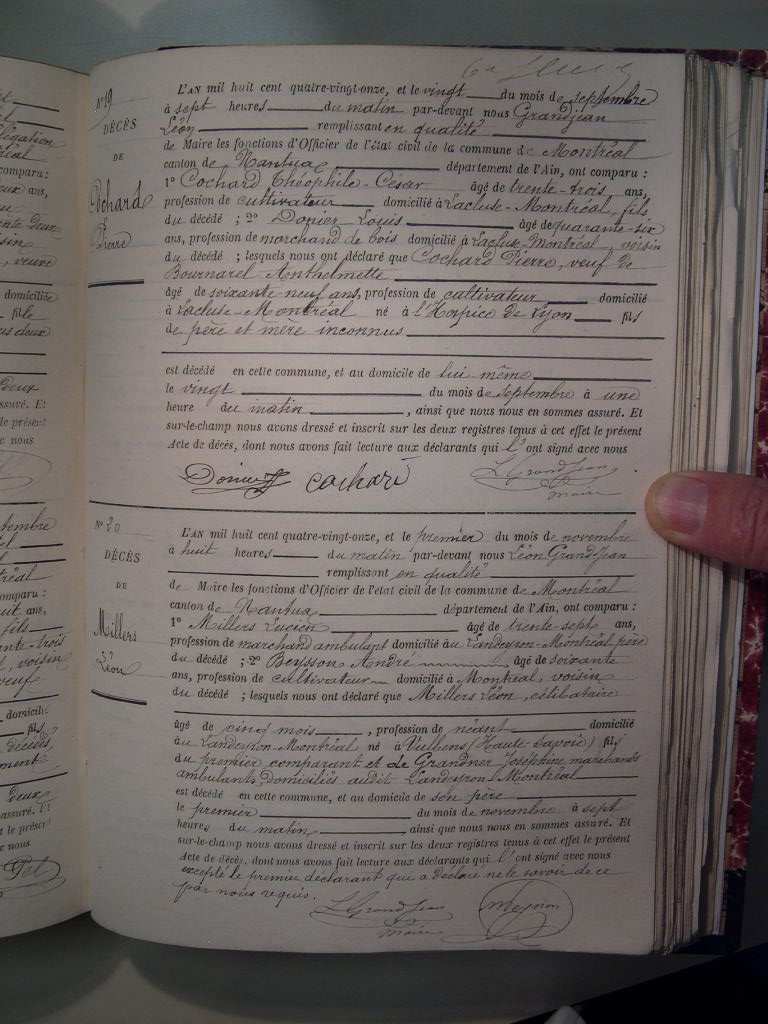 6e
N° 19
DÉCÈS
DE
Cochard
Pierre
L'AN mil huit cent quatre-vingt-onze, et le vingt du mois de septembre
à sept heures du matin par-devant nous Grandjean
Léon remplissant en qualité
de Maire les fonctions d'Officier de l'état civil de la commune de Montréal
canton de Nantua département de l'Ain, ont comparu :
1° Cochard Théophile-César âgé de trente-trois ans,
profession de cultivateur domicilié à Lacluse-Montréal, fils
du décédé ; 2° Donier Louis âgé de quarante-six
ans, profession de marchand de bois domicilié à Lacluse-Montréal, voisin
du décédé ; lesquels nous ont déclaré que Cochard Pierre, veuf de
Bournarel Anthelmette
âgé de soixante neuf ans, profession de cultivateur domicilié
à Lacluse-Montréal né à l'Hospice de Lyon fils
de père et mère inconnus
est décédé en cette commune, et au domicile de lui-même
le vingt du mois de septembre à une
heure du matin, ainsi que nous nous en sommes assuré. Et
sur-le-champ nous avons dressé et inscrit sur les deux registres tenus à cet effet le présent
Acte de décès, dont nous avons fait lecture aux déclarants qui l'ont signé avec nous
Donier Cochard LGrandJean
maire
N° 20
DÉCÈS
DE
Millers
Léon
L'AN mil huit cent quatre-vingt-onze, et le premier du mois de novembre
à huit heures du matin par-devant nous Léon GrandJean
remplissant en qualité
de Maire les fonctions d'Officier de l'état civil de la commune de Montréal
canton de Nantua département de l'Ain, ont comparu :
1° Millers Lucien âgé de trente-sept ans,
profession de marchand ambulant domicilié au Landeyron-Montréal père
du décédé ; 2° Beysson André âgé de soixante
ans, profession de cultivateur domicilié à Montréal, voisin
du décédé ; lesquels nous ont déclaré que Millers Léon, célibataire
âgé de cinq mois, profession de néant domicilié
au Landeyron-Montréal né à Vulbens (Haute Savoie) fils
du premier comparant et de Grandner Joséphine marchands
ambulants, domiciliés audit Landeyron-Montréal
est décédé en cette commune, et au domicile de son père
le premier du mois de novembre à sept
heures du matin, ainsi que nous nous en sommes assuré. Et
sur-le-champ nous avons dressé et inscrit sur les deux registres tenus à cet effet le présent
Acte de décès, dont nous avons fait lecture aux déclarants qui l'ont signé avec nous
excepté le premier déclarant qui a déclaré ne le savoir de ce
par nous requis.
LGrandJean
maire